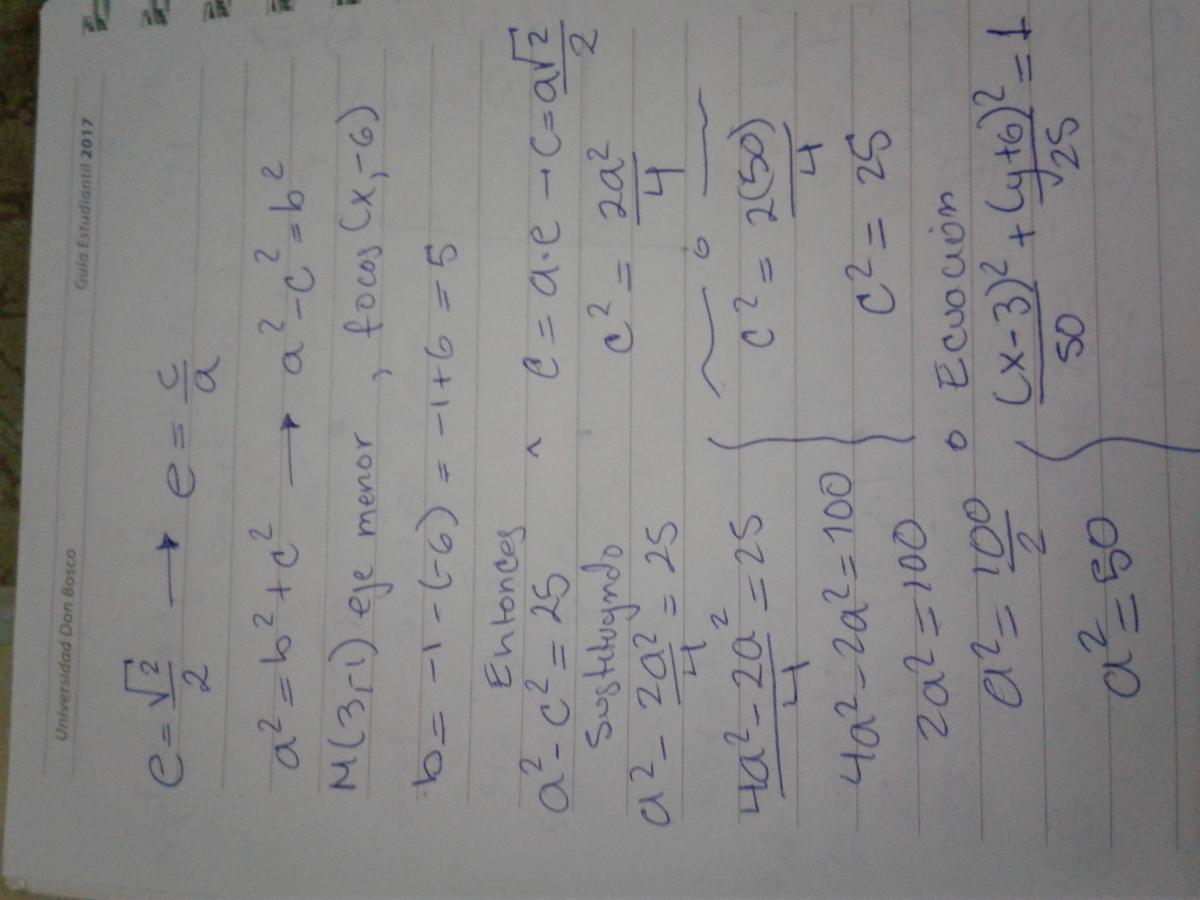 Universidad Don Bosco Guía Estudiantil 2017
e = √2/2 → e = c/a
a² = b² + c² → a² - c² = b²
M(3,-1) eje menor, focos (x,-6)
b = -1 - (-6) = -1 + 6 = 5
Entonces
a² - c² = 25 ^ c = a·e → c = a√2/2
Sustituyndo
a² - 2a²/4 = 25 c² = 2a²/4
(4a² - 2a²)/4 = 25 c² = 2(50)/4
4a² - 2a² = 100 c² = 25
2a² = 100 o Ecuación
a² = 100/2 (x-3)²/50 + (y+6)²/25 = 1
a² = 50